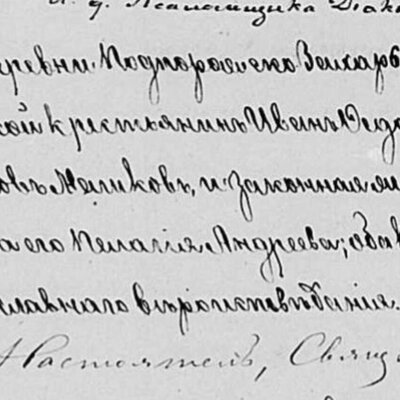 И. д. Псаломщика Діак
ревни Подпорожско Захарь
кой крестьянинъ Иванъ
овъ Маликовъ, и законная
а его Пелагія Андреева; об
славнаго вѣроисповѣданія.
Настоятель, Свящ